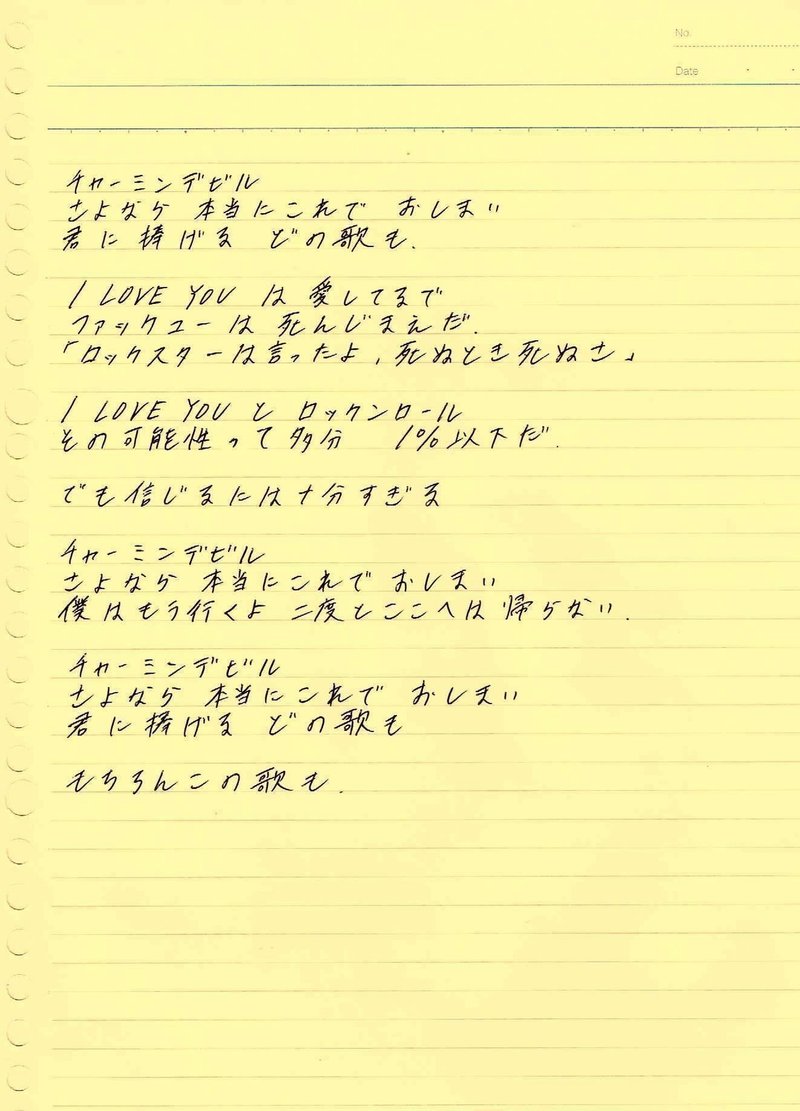 No.
Date
チャーミンデビル
さよなら 本当にこれで おしまい
君に捧げる どの歌も.
I LOVE YOU は 愛してるで
ファックユーは 死んじまえだ.
「ロックスターは言ったよ, 死ぬとき死ぬさ」
I LOVE YOU と ロックンロール
その可能性って多分 1%以下だ.
でも信じるには十分すぎる
チャーミンデビル
さよなら 本当にこれで おしまい
僕はもう行くよ 二度とここへは帰らない.
チャーミンデビル
さよなら 本当にこれで おしまい
君に捧げる どの歌も
もちろんこの歌も.